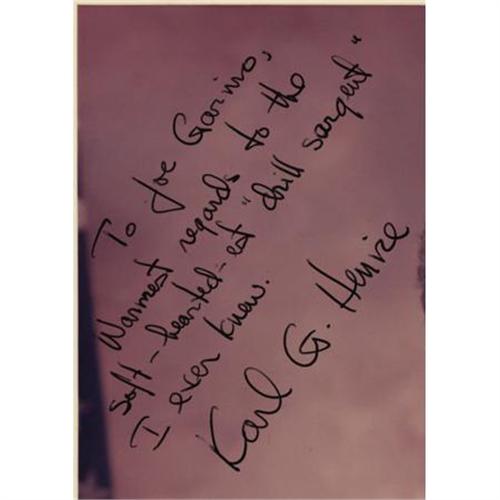 To Joe Garino,
Warmest regards to the
soft-hearted-est "drill sargent"
I ever knew.
Karl G. Henize